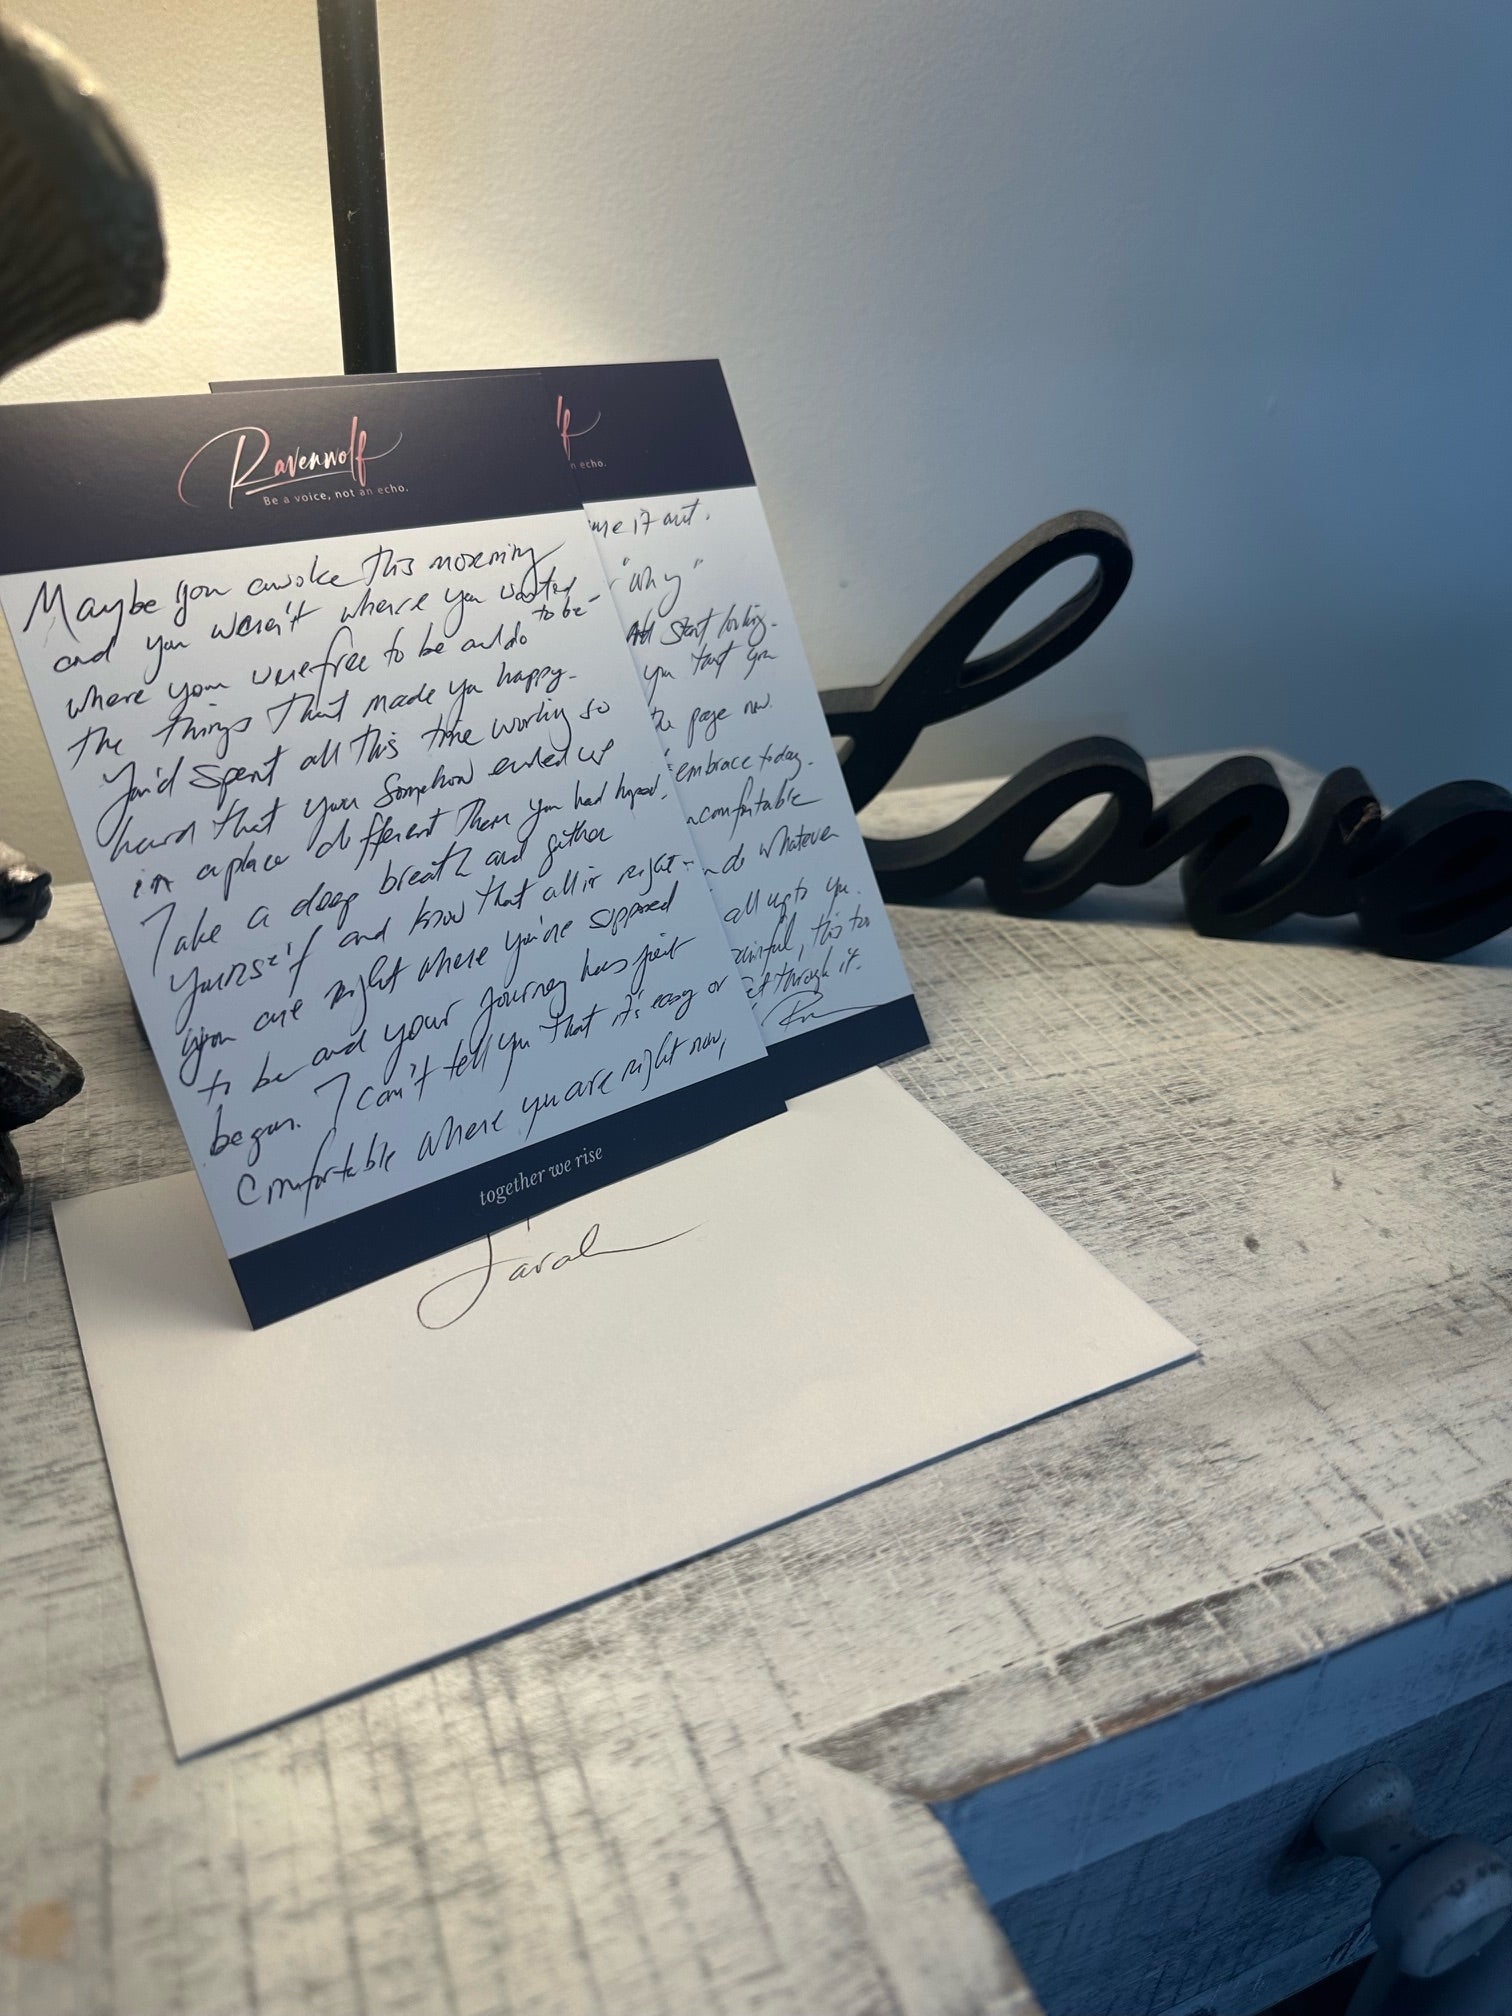 Ravenwolf
Be a voice, not an echo.
Maybe you awoke this morning
and you weren't where you wanted
to be-
where you were free to be and do
the things that made you happy.
You'd spent all this time working so
hard that you somehow ended up
in a place different then you had hoped.
Take a deep breath and gather
yourself and know that all is right -
you are right where you're supposed
to be and your journey has just
begun. I can't tell you that it's easy or
comfortable where you are right now,
together we rise
lf
n echo.
it out.
"why"
start looking.
you that you
the page now.
embrace today.
comfortable
do whatever
all up to you.
painful, this too
get through it.
Sarah
Love